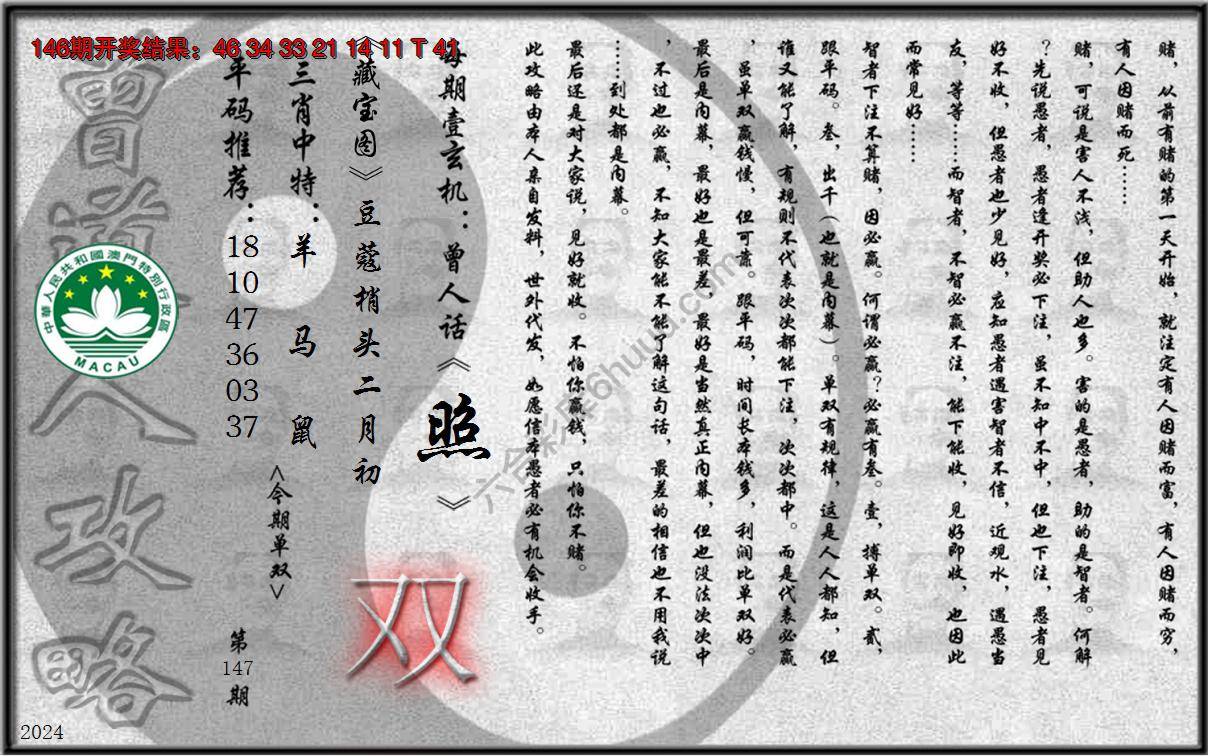 146期开奖结果：46 34 33 21 14 11 T 41
赌，从前有赌的第一天开始，就注定有人因赌而富，有人因赌而穷，
有人因赌而死……
赌，可说是害人不浅，但助人也多。害的是愚者，助的是智者。何解
？先说愚者，愚者逢开奖必下注，虽不知中不中，但也下注，愚者见
好不收，但愚者也少见好，应知愚者遇害智者不信，近观水，遇愚当
友，等等……而智者，不智必赢不注，能下能收，见好即收，也因此
而常见好……
智者下注不算赌，因必赢。何谓必赢？必赢有叁。壹，搏单双。贰，
跟平码。叁，出千（也就是内幕）。单双有规律，这是人人都知，但
谁又能了解，有规则不代表次次都能下注，次次都中。而是代表必赢
，虽单双赢钱慢，但可靠。跟平码，时间长本钱多，利润比单双好。
最后是内幕，最好也是最差，最好是当然真正内幕，但也没法次次中
，不过也必赢，不知大家能不能了解这句话，最差的相信也不用我说
……到处都是内幕。
最后还是对大家说，见好就收。不怕你赢钱，只怕你不赌。
此攻略由本人亲自发料，世外代发，如愿信本愚者必有机会收手。
每期壹玄机：曾人话《照》
《藏宝图》豆蔻梢头二月初
三肖中特：羊 马 鼠
<今期单双>
双
平码推荐：18 10 47 36 03 37
第147期
曾道人攻略
中華人民共和國澳門特別行政區
MACAU
六合彩库6huu.com
2024